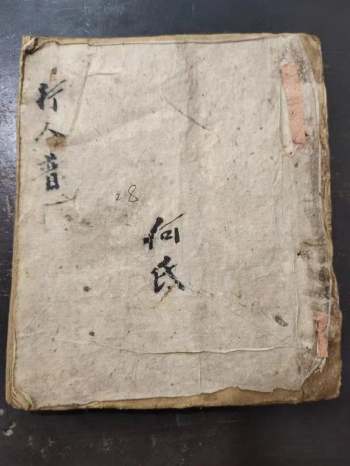 行人普一
28
何氏